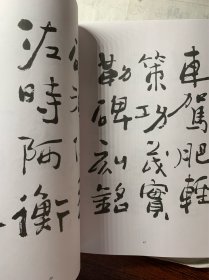 車駕肥輕
策功茂實
勒碑刻銘
佐時阿衡